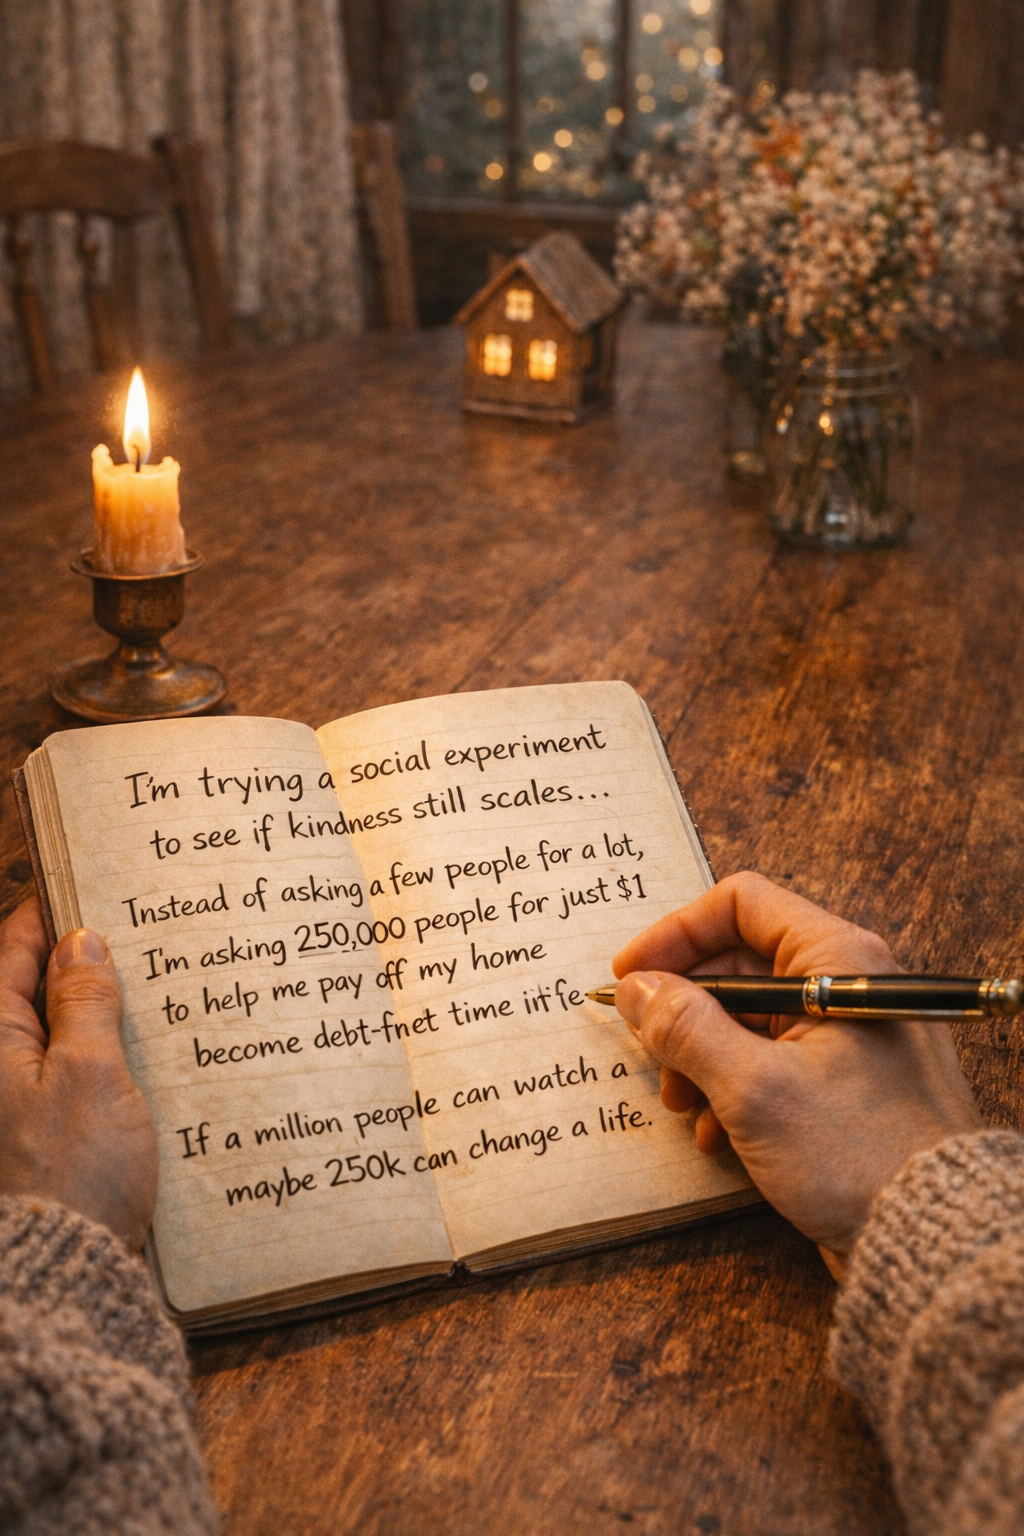 I'm trying a social experiment
to see if kindness still scales...
Instead of asking a few people for a lot,
I'm asking 250,000 people for just $1
to help me pay off my home
become debt-fnet time
If a million people can watch a
maybe 250k can change a life.